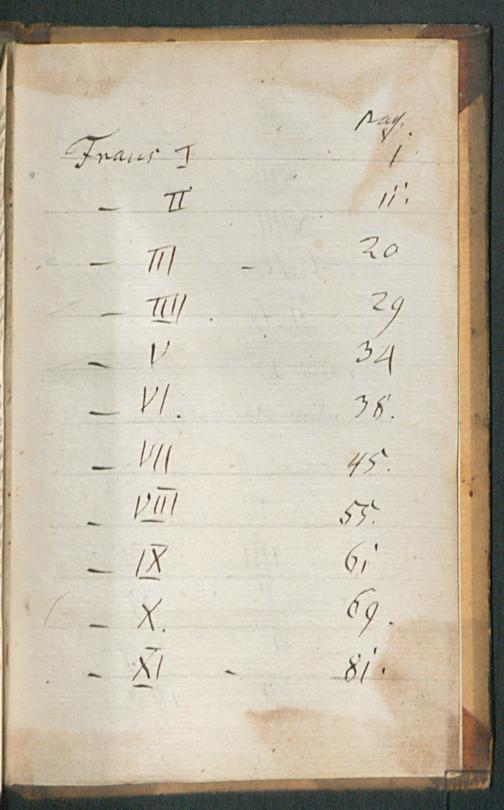 pag.
Fraus I 1
- II 11.
- III - 20
- IIII . 29
- V 34
- VI. 38.
- VII 45.
- VIII 55.
- IX 61
- X. 69.
- XI - 81.